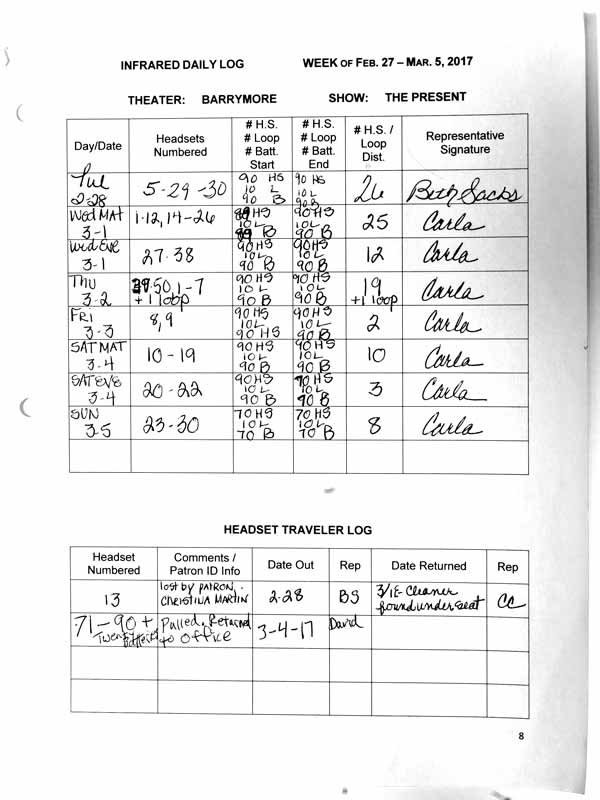 INFRARED DAILY LOG WEEK OF FEB. 27 – MAR. 5, 2017
THEATER: BARRYMORE SHOW: THE PRESENT
Day/Date Headsets Numbered # H.S. # Loop # Batt. Start # H.S. # Loop # Batt. End # H.S. / Loop Dist. Representative Signature
Tue 2-28 5-29-30 90 HS 10 L 90 B 90 HS 10 L 90 B 26 Beth Sachs
Wed MAT 3-1 1-12, 14-26 89 HS 10 L 89 B 90 HS 10 L 90 B 25 Carla
Wed EVE 3-1 27-38 90 HS 10 L 90 B 90 HS 10 L 90 B 12 Carla
THU 3-2 39-50, 1-7 +1 loop 90 HS 10 L 90 B 90 HS 10 L 90 B 19 +1 loop Carla
FRI 3-3 8,9 90 HS 10 L 90 HS 90 HS 10 L 90 B 2 Carla
SAT MAT 3-4 10-19 90 HS 10 L 90 B 90 HS 10 L 90 B 10 Carla
SAT EVE 3-4 20-22 90 HS 10 L 90 B 90 HS 10 L 90 B 3 Carla
SUN 3-5 23-30 70 HS 10 L 70 B 70 HS 10 L 70 B 8 Carla
HEADSET TRAVELER LOG
Headset Numbered Comments / Patron ID Info Date Out Rep Date Returned Rep
13 lost by PATRON, CHRISTINA MARTIN 2-28 BS cleaner found under seat CC
71-90 + Twenty Pulled. Returned to office 3-4-17 David
8